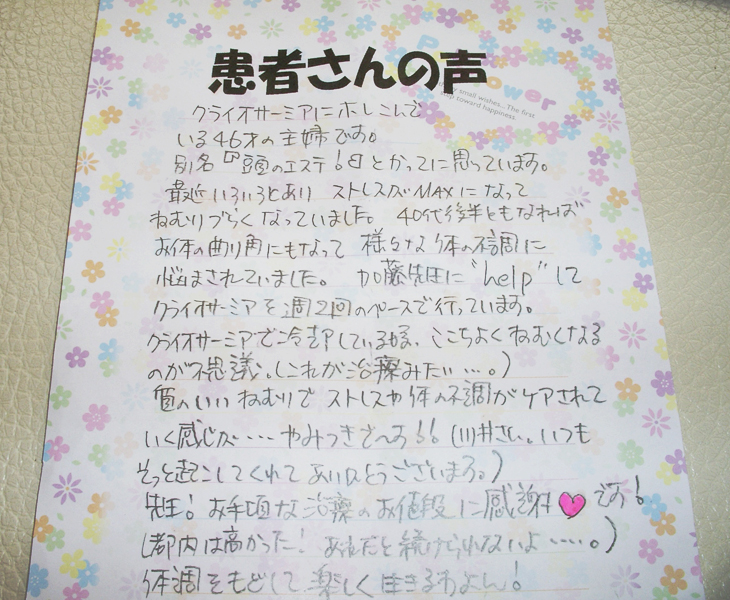 患者さんの声
ower
small wishes... The first
step toward happiness
クライオサーミアにホレこんで
いる46才の主婦です。
別名『頭のエステ!』とかってに思っています。
最近いろいろとあり ストレスがMAXになって
ねむりづらくなっていました。40代後半ともなれば
お体の曲り角にもなって 様々な体の不調に
悩まされていました。 加藤先生に"help"して
クライオサーミアを週2回のペースで行っています。
クライオサーミアで冷却している時、ここちよくねむくなる
のが不思議。(これが治療みたい…。)
質のいいねむりで ストレスや体の不調がケアされて
いく感じが…やみつきでーす!!(川井さん。いつも
そっと起こしてくれてありがとうございます。)
先生!お手頃な治療のお値段に感謝です!
(都内は高かった! あれだと続けられないよ…。)
体調をもどして 楽しく生きるわよん!